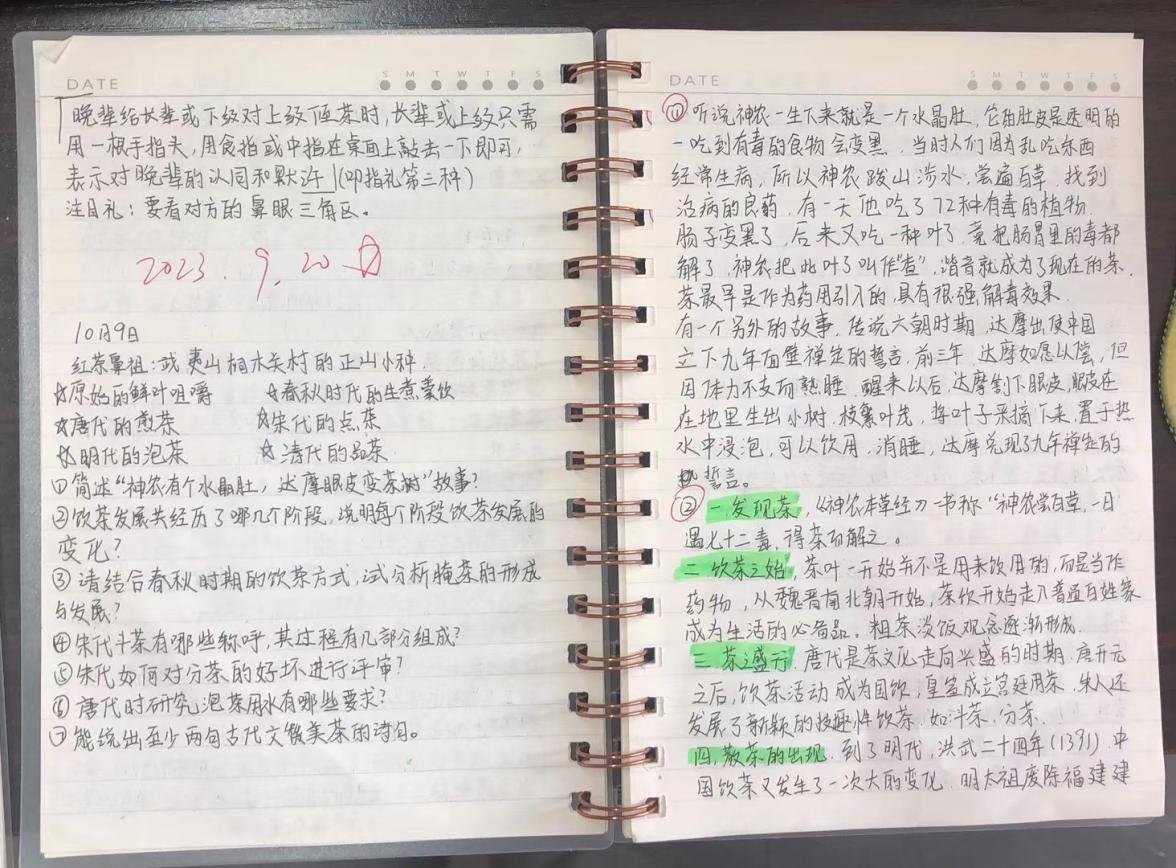 DATE
S M T W T F S
晚辈给长辈或下级对上级 茶时，长辈或上级只需
用一根手指头，用食指或中指在桌面上敲击一下即可，
表示对晚辈的认同和默许(叩指礼第三种)
注目礼：要看对方的鼻眼三角区。
2023.9.20
10月9日
红茶鼻祖：武夷山桐木关村的正山小种.
☆原始的鲜叶咀嚼 ☆春秋时代的生煮羹饮
☆唐代的煎茶 ☆宋代的点茶
☆明代的泡茶 ☆清代的品茶
①简述“神农有个水晶肚，达摩眼皮变茶树”故事？
②饮茶发展共经历了哪几个阶段，说明每个阶段饮茶发展的
变化？
③请结合春秋时期的饮茶方式，试分析腌茶的形成
与发展？
④宋代斗茶有哪些称呼，其过程有几部分组成？
⑤宋代如何对分茶的好坏进行评审？
⑥唐代时研究泡茶用水有哪些要求？
⑦能说出至少两句古代文 美茶的诗句。
DATE
S M T W T F S
① 听说神农一生下来就是一个水晶肚，它的肚皮是透明的
一吃到有毒的食物会变黑.当时人们因为乱吃东西
经常生病，所以神农跋山涉水，尝遍百草.找到
治病的良药.有一天他吃了72种有毒的植物.
肠子变黑了，后来又吃一种叶子，竟把肠胃里的毒都
解了，神农把此叶子叫作“查”，谐音就成为了现在的茶.
茶最早是作为药用引入的，具有很强解毒效果.
有一个另外的故事.传说六朝时期.达摩出使中国
立下九年面壁禅定的誓言，前三年.达摩如愿以偿，但
因体力不支而熟睡.醒来以后，达摩割下眼皮，眼皮在
在地里生出小树.枝繁叶茂，将叶子采摘下来，置于热
水中浸泡，可以饮用.消睡，达摩兑现了九年禅定的
誓言。
② 一.发现茶，《神农本草经》一书称“神农尝百草，一日
遇七十二毒，得茶而解之。
二.饮茶之始，茶叶一开始并不是用来饮用的，而是当作
药物，从魏晋南北朝开始，茶饮开始走入普通百姓家
成为生活的必备品。粗茶淡饭观念逐渐形成.
三.茶之盛行.唐代是茶文化走向兴盛的时期.唐开元
之后，饮茶活动成为国饮，皇室成立宫廷用茶.宋人还
发展了新颖的技趣性饮茶.如斗茶.分茶.
四.散茶的出现.到了明代，洪武二十四年(1391).中
国饮茶又发生了一次大的变化.明太祖废除福建建